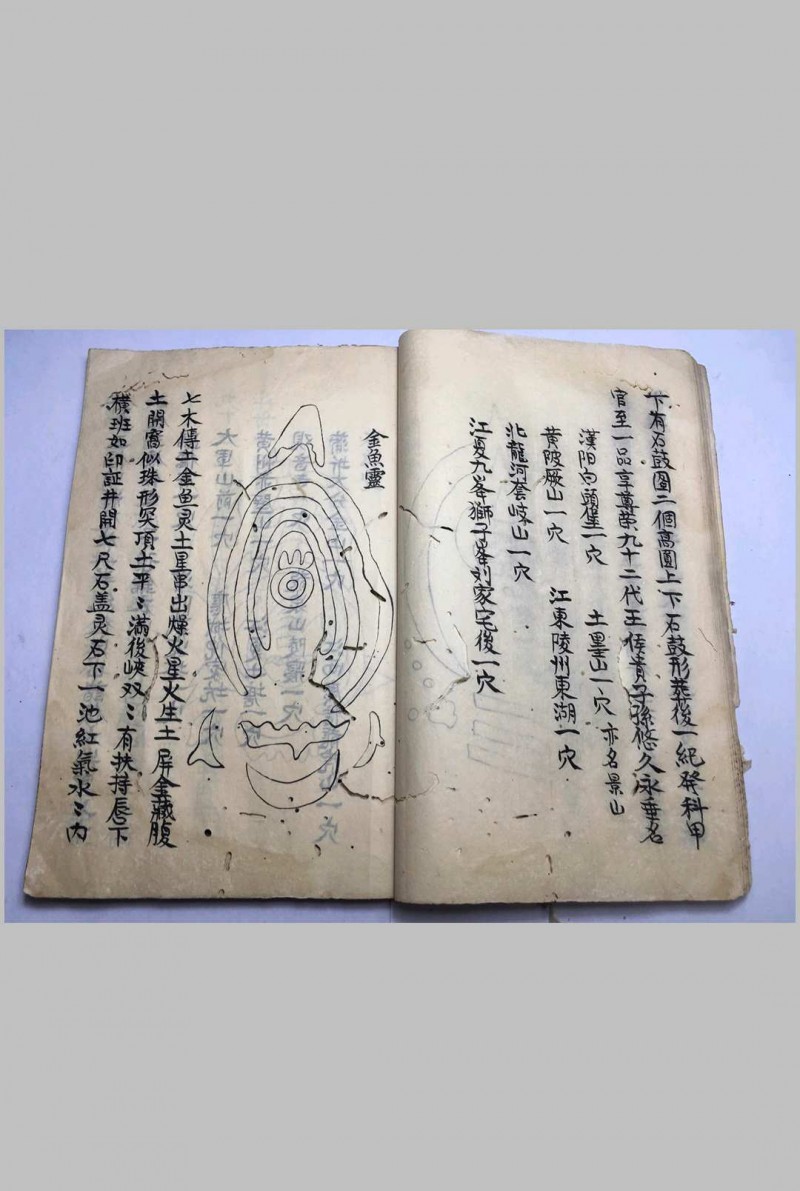 下有石鼓圖二個高圓上下石鼓形葬後一紀發科甲
官至一品享尊荣九十二代王侯貴子孫悠久永垂名
漢阳勾頭隹一穴 土里山一穴 亦名景山
黄陂厥山一穴 江東陵州東湖一穴
北龍河套岐山一穴
江夏九峯獅子峯刘家宅後一穴
金魚靈
七木傳土金魚灵土星串出燥火星火生土屏金藏腹
土開窩似珠形突頂土平〻滿後峽双〻有扶持唇下
横班如印証井開七尺石盖灵石下一池紅氣水〻内